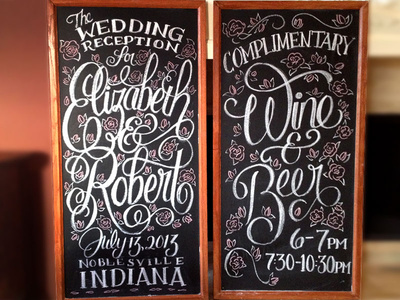 The
WEDDING
RECEPTION
for
Elizabeth
&
Robert
July 13, 2013
NOBLESVILLE
INDIANA
COMPLIMENTARY
Wine
&
Beer
6-7PM
7:30-10:30PM